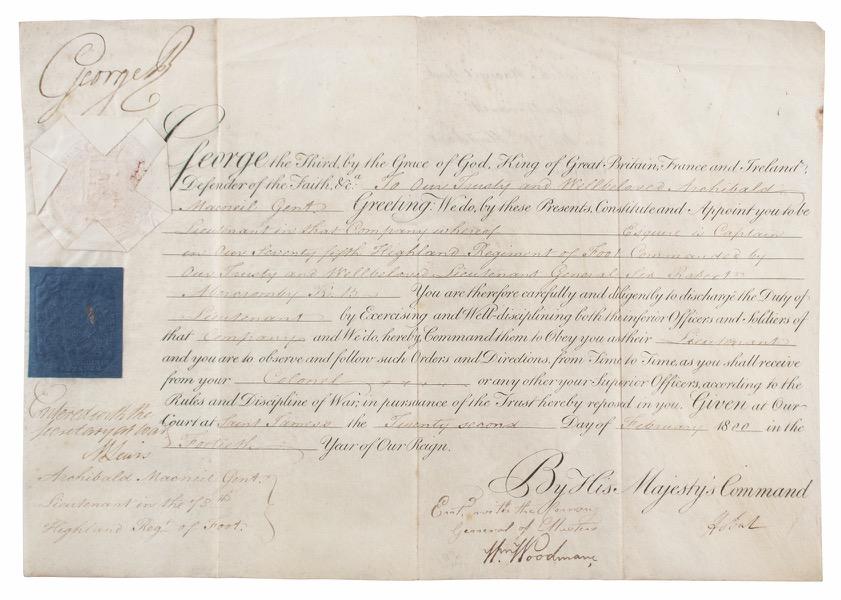 George R
George the Third, by the Grace of God, King of Great-Britain, France and Ireland,
Defender of the Faith, &c.a To Our Trusty and Wellbeloved Archibald
Macneil Gent. Greeting: We do, by these Presents, Constitute and Appoint you to be
Lieutenant in that Company whereof Esquire is Captain
in Our Seventy fifth Highland Regiment of Foot Commanded by
Our Trusty and Wellbeloved Lieutenant General Sir Robert
Abercromby K: B. You are therefore carefully and diligently to discharge the Duty of
Lieutenant by Exercising and Well-disciplining both the inferior Officers and Soldiers of
that Company and We do, hereby, Command them to Obey you as their Lieutenant
and you are to observe and follow such Orders and Directions, from Time to Time, as you shall receive
from your Colonel or any other your Superior Officers, according to the
Rules and Discipline of War, in pursuance of the Trust hereby reposed in you. Given at Our
Court at Saint James's the Twenty second Day of February 1800 in the
Fortieth Year of Our Reign.
By His Majesty's Command
Entered with the
Secretary at War
M Lewis
Archibald Macneil Gent.
Lieutenant in the 75th
Highland Regt. of Foot.
Entd. with the
General of
Wm. Woodman